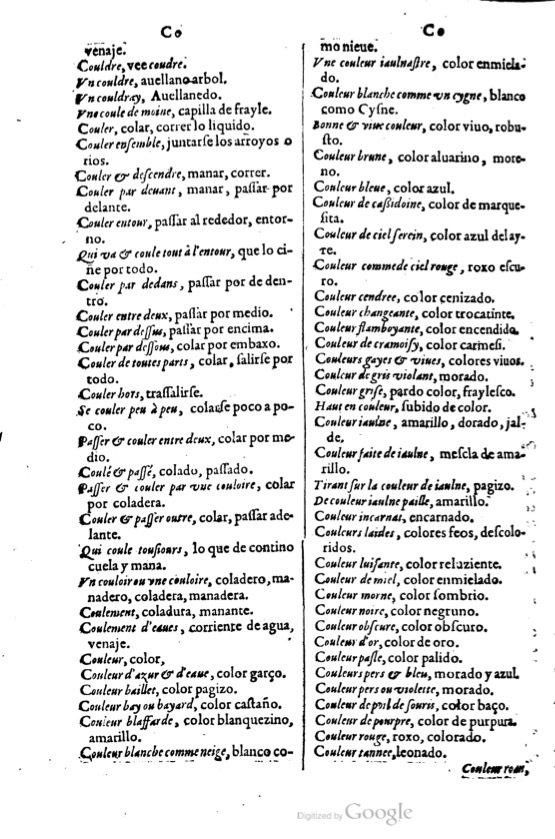 Co
venaje.
Couldre, vee coudre.
Vn couldre, auellano arbol.
Vn couldray, Auellanedo.
Vne coule de moine, capilla de frayle.
Couler, colar, correr lo liquido.
Couler enſemble, juntarſe los arroyos o
rios.
Couler & deſcendre, manar, correr.
Couler par deuant, manar, paſſar por
delante.
Couler entour, paſſar al rededor, entor-
no.
Qui va & coule tout à l'entour, que lo ci-
ñe por todo.
Couler par dedans, paſſar por de den-
tro.
Couler entre deux, paſſar por medio.
Couler par deſſus, paſſar por encima.
Couler par deſſous, colar por embaxo.
Couler de toutes parts, colar, ſalirſe por
todo.
Couler hors, traſſalirſe.
Se couler peu à peu, colarſe poco a po-
co.
Paſſer & couler entre deux, colar por me-
dio.
Coulé & paſſé, colado, paſſado.
Paſſer & couler par vne couloire, colar
por coladera.
Couler & paſſer outre, colar, paſſar ade-
lante.
Qui coule touſiours, lo que de contino
cuela y mana.
Vn couloir ou vne couloire, coladero, ma-
nadero, coladera, manadera.
Coulement, coladura, manante.
Coulement d'eaues, corriente de agua,
venaje.
Couleur, color,
Couleur d'azur & d'eaue, color garço.
Couleur baillet, color pagizo.
Couleur bay ou bayard, color caſtaño.
Couleur blaffarde, color blanquezino,
amarillo.
Couleur blanche comme neige, blanco co-
Co
mo nieue.
Vne couleur iaulnaſtre, color enmiela-
do.
Couleur blanche comme vn cygne, blanco
como Cyſne.
Bonne & viue couleur, color viuo, robu-
ſto.
Couleur brune, color aluarino, more-
no.
Couleur bleue, color azul.
Couleur de caſſidoine, color de marque-
ſita.
Couleur de ciel ſerein, color azul del ay-
re.
Couleur comme de ciel rouge, roxo eſcu-
ro.
Couleur cendree, color cenizado.
Couleur changeante, color trocatinte.
Couleur flamboyante, color encendido.
Couleur de cramoiſy, color carmeſi.
Couleurs gayes & viues, colores viuos.
Couleur de gris violant, morado.
Couleur griſe, pardo color, frayleſco.
Haut en couleur, ſubido de color.
Couleur iaulne, amarillo, dorado, jal-
de.
Couleur faite de iaulne, meſcla de ama-
rillo.
Tirant ſur la couleur de iaulne, pagizo.
De couleur iaulne paille, amarillo.
Couleur incarnat, encarnado.
Couleurs laides, colores feos, deſcolo-
ridos.
Couleur luiſante, color reluziente.
Couleur de miel, color enmielado.
Couleur morne, color ſombrio.
Couleur noire, color negruno.
Couleur obſcure, color obſcuro.
Couleur d'or, color de oro.
Couleur paſle, color palido.
Couleurs pers & bleu, morado y azul.
Couleur pers ou violette, morado.
Couleur de poil de ſouris, color baço.
Couleur de pourpre, color de purpura.
Couleur rouge, roxo, colorado.
Couleur tannee, leonado.
Digitized by Google